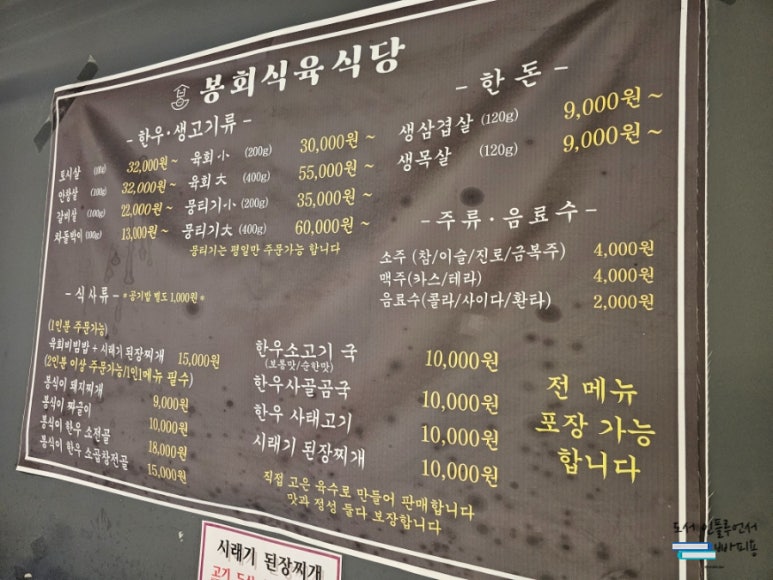 봉회식육식당
- 한우·생고기류 -
토시살 (100g) 32,000원~
안창살 (100g) 32,000원~
갈비살 (100g) 22,000원~
차돌박이 (100g) 13,000원~
육회 小 (200g) 30,000원~
육회 大 (400g) 55,000원~
뭉티기 小 (200g) 35,000원~
뭉티기 大 (400g) 60,000원~
뭉티기는 평일만 주문가능 합니다
- 한 돈 -
생삼겹살 (120g) 9,000원~
생목살 (120g) 9,000원~
- 주류·음료수 -
소주 (참/이슬/진로/금복주) 4,000원
맥주(카스/테라) 4,000원
음료수(콜라/사이다/환타) 2,000원
- 식사류 - * 공기밥 별도 1,000원 *
(1인분 주문가능)
육회비빔밥 + 시래기 된장찌개 15,000원
(2인분 이상 주문가능/1인1메뉴 필수)
봉식이 돼지찌개 9,000원
봉식이 짜글이 10,000원
봉식이 한우 소전골 18,000원
봉식이 한우 소곱창전골 15,000원
한우소고기 국 10,000원
(보통맛/순한맛)
한우사골곰국 10,000원
한우 사태고기 10,000원
시래기 된장찌개 10,000원
직접 고은 육수로 만들어 판매합니다
맛과 정성 둘다 보장합니다
전 메뉴
포장 가능
합니다
시래기 된장찌개
도서인플루언서
빠삐용